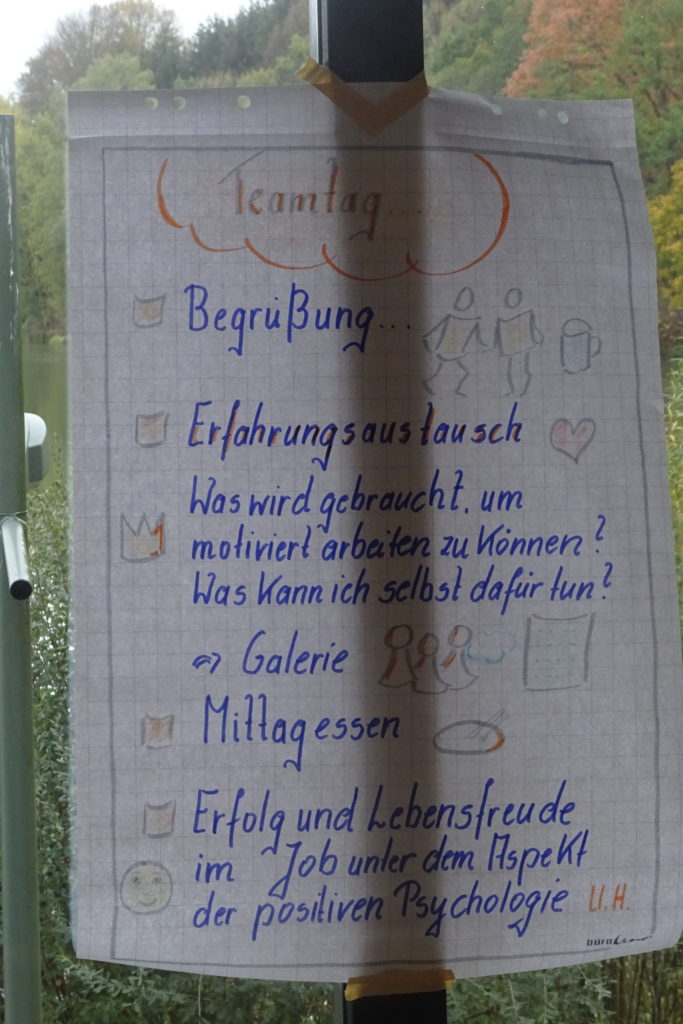 Teamtag...
Begrüßung...
Erfahrungsaustausch
Was wird gebraucht, um
1
motiviert arbeiten zu können?
Was kann ich selbst dafür tun?
⇒ Galerie
Mittagessen
Erfolg und Lebensfreude
im Job unter dem Aspekt
der positiven Psychologie U.H.